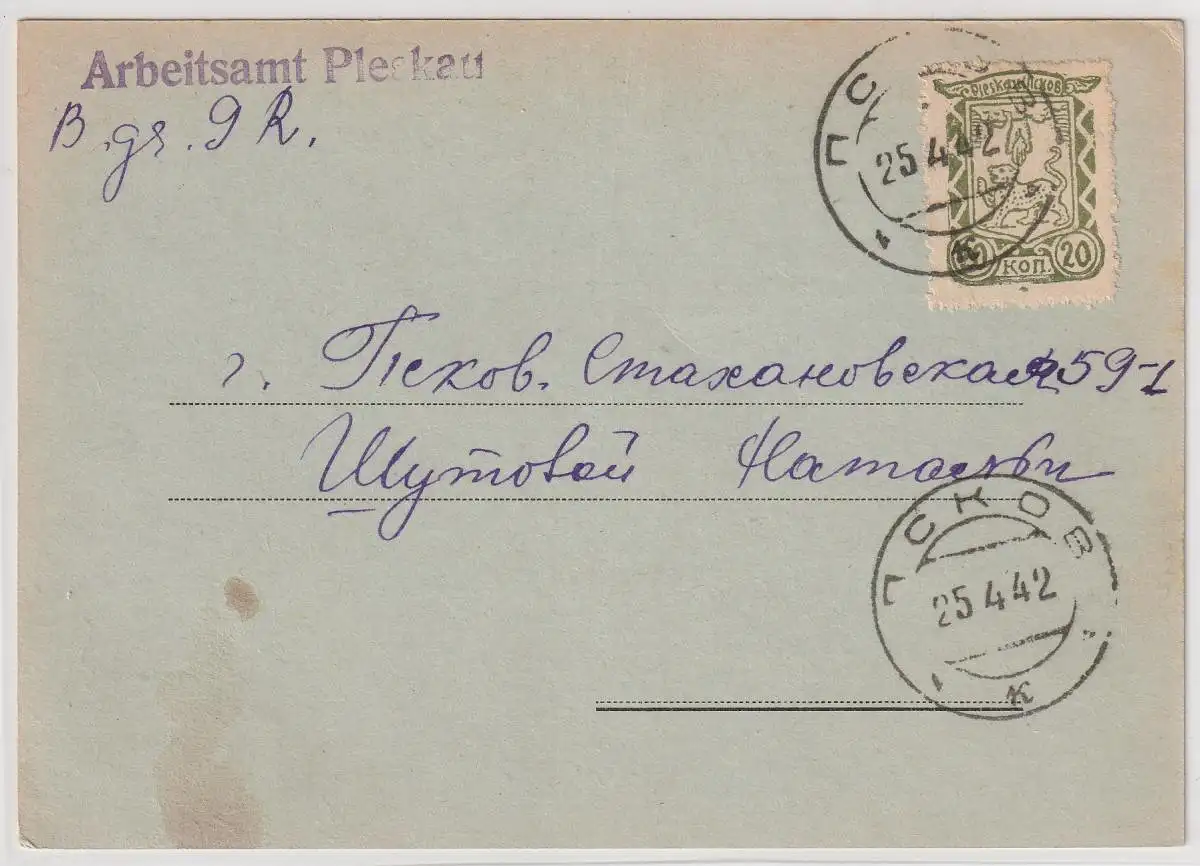 Arbeitsamt Pleskau
B. gr. 9 R.
ПСКОВ
25 4 42
к
Pleskau Псков
20 КОП. 20
г. Псков. Стахановская 59-1
Шутовой Натальи
ПСКОВ
25 4 42
к